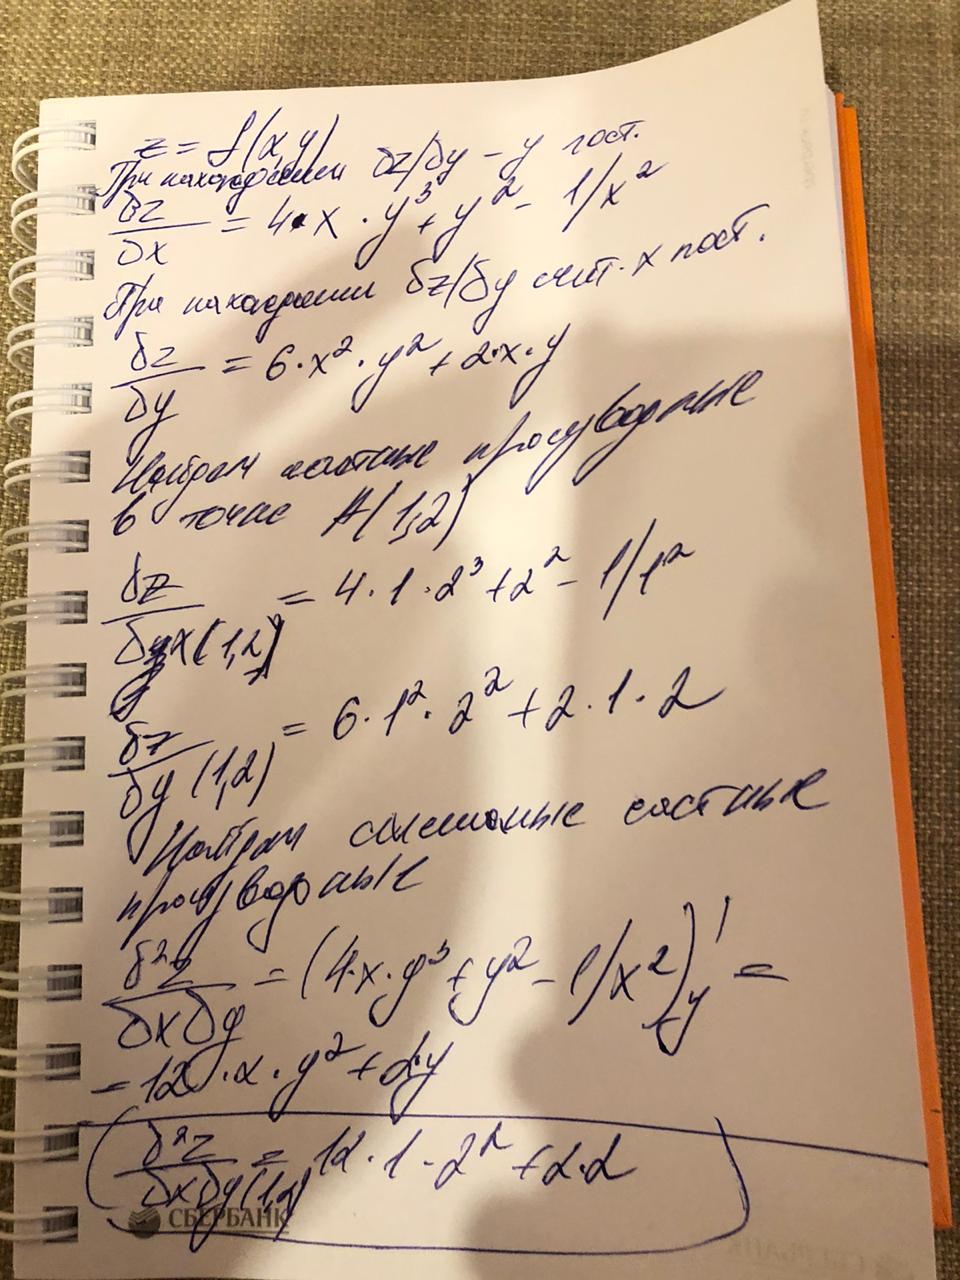 z = f(x,y)
При нахождении ∂z/∂y – y пост.
∂z/∂x = 4·x·y³ + y² – 1/x²
При нахождении ∂z/∂y счит. x пост.
∂z/∂y = 6·x²·y² + 2·x·y
Найдем частные производные
в точке A(1,2)
∂z/∂x(1,2) = 4·1·2³ + 2² – 1/1²
∂z/∂y(1,2) = 6·1²·2² + 2·1·2
Найдем смешанные частные
производные
∂²z/∂x∂y = (4·x·y³ + y² – 1/x²)'y =
= 12·x·y² + 2·y
∂²z/∂x∂y(1,2) = 12·1·2² + 2·2
СБЕРБАНК